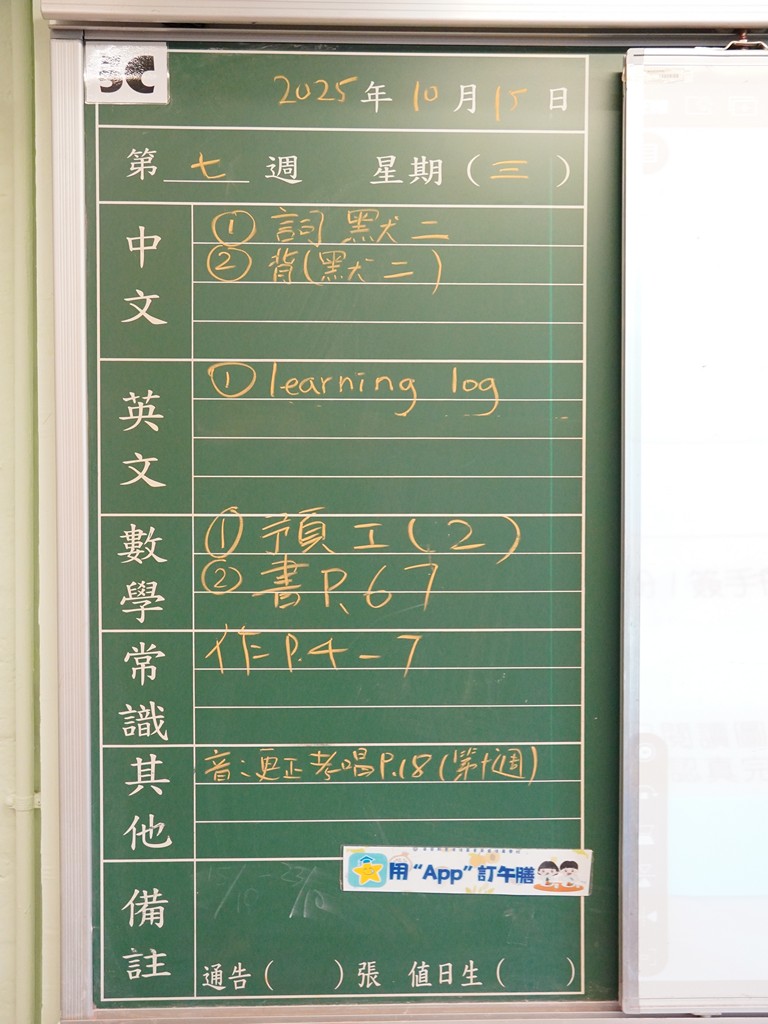 3C
2025年10月15日
第七週 星期(三)
中文
① 詞默二
② 背(默二)
英文
① learning log
數學
① 預工(2)
② 書P.67
常識
作P.4-7
其他
音:更正 考唱P.18(第十週)
備註
用“App”訂午膳
通告( )張 值日生( )